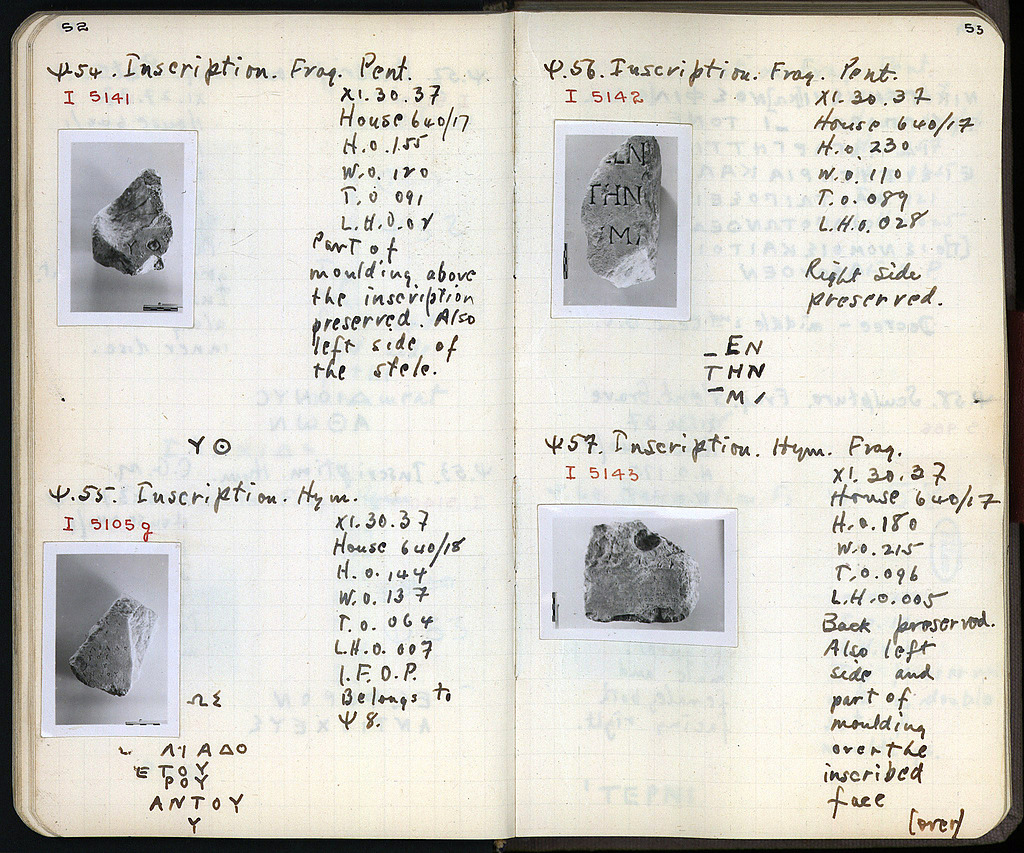 52
Ψ54. Inscription. Frag. Pent.
I 5141
XI.30.37
House 640/17
H.0.155
W.0.120
T.0.091
L.H.0.02
Part of
moulding above
the inscription
preserved. Also
left side of
the stele.
ΥΘ
Ψ.55. Inscription. Hym.
I 5105g
XI.30.37
House 640/18
H.0.144
W.0.137
T.0.064
L.H.0.007
I.F.O.P.
Belongs to
Ψ8.
ΩΣ
ΛΙΑΔΟ
ΕΤΟΥ
ΡΟΥ
ΑΝΤΟΥ
Υ
53
Ψ.56. Inscription. Frag. Pent.
I 5142
XI.30.37
House 640/17
H.0.230
W.0.110
T.0.089
L.H.0.028
Right side
preserved.
ΕΝ
ΤΗΝ
Μ
ΕΝ
ΤΗΝ
Μ
Ψ57. Inscription. Hym. Frag.
I 5143
XI.30.37
House 640/17
H.0.180
W.0.215
T.0.096
L.H.0.005
Back preserved.
Also left
side and
part of
moulding
over the
inscribed
face
(over)